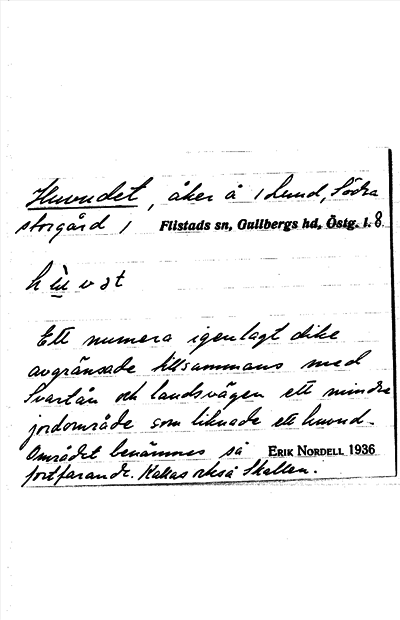 Huvudet, åker å 1 Lund, Södra
storgård 1 Flistads sn, Gullbergs hd, Östg. l. 8
Ett numera igenlagt dike
avgränsade tillsammans med
Svartån och landsvägen ett mindre
jordområde som liknade ett huvud.
Området benämnes så ERIK NORDELL 1936
fortfarande. Kallas också Skallen.